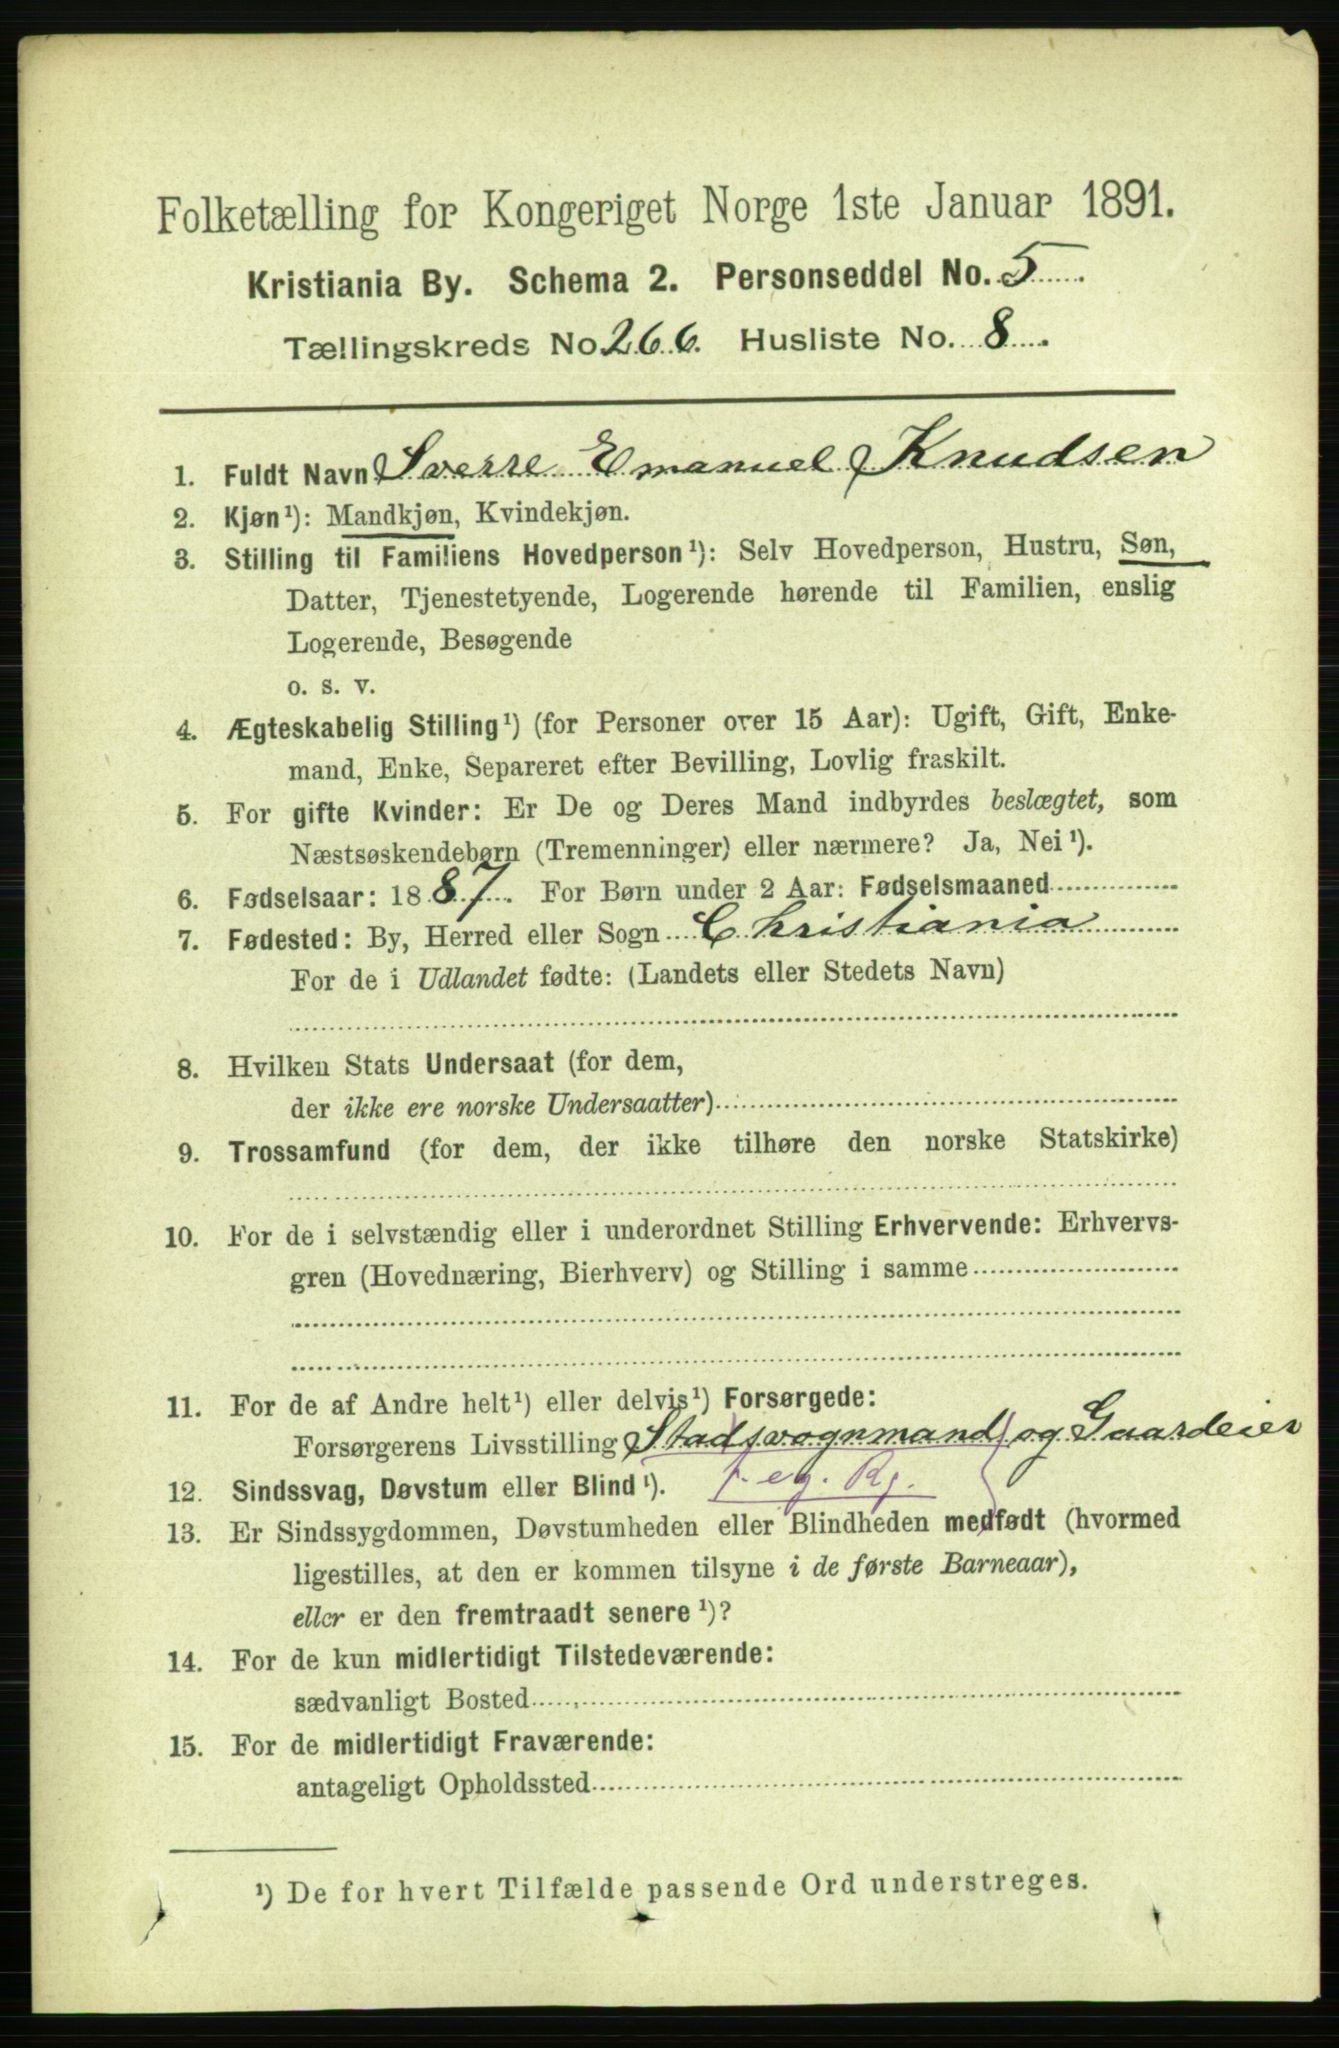 Folketælling for Kongeriget Norge 1ste Januar 1891.
Kristiania By. Schema 2. Personseddel No. 5
Tællingskreds No. 266. Husliste No. 8
1. Fuldt Navn Sverre Emanuel Knudsen
2. Kjøn¹): Mandkjøn, Kvindekjøn.
3. Stilling til Familiens Hovedperson¹): Selv Hovedperson, Hustru, Søn,
Datter, Tjenestetyende, Logerende hørende til Familien, enslig
Logerende, Besøgende
o. s. v.
4. Ægteskabelig Stilling¹) (for Personer over 15 Aar): Ugift, Gift, Enke-
mand, Enke, Separeret efter Bevilling, Lovlig fraskilt.
5. For gifte Kvinder: Er De og Deres Mand indbyrdes beslægtet, som
Næstsøskendebørn (Tremenninger) eller nærmere? Ja, Nei¹).
6. Fødselsaar: 1887. For Børn under 2 Aar: Fødselsmaaned
7. Fødested: By, Herred eller Sogn Christiania
For de i Udlandet fødte: (Landets eller Stedets Navn)
8. Hvilken Stats Undersaat (for dem,
der ikke ere norske Undersaatter)
9. Trossamfund (for dem, der ikke tilhøre den norske Statskirke)
10. For de i selvstændig eller i underordnet Stilling Erhvervende: Erhvervs-
gren (Hovednæring, Bierhverv) og Stilling i samme
11. For de af Andre helt¹) eller delvis¹) Forsørgede:
Forsørgerens Livsstilling Stadsvognmand og Gaardeier
12. Sindssvag, Døvstum eller Blind¹). eg.
13. Er Sindssygdommen, Døvstumheden eller Blindheden medfødt (hvormed
ligestilles, at den er kommen tilsyne i de første Barneaar),
eller er den fremtraadt senere¹)?
14. For de kun midlertidigt Tilstedeværende:
sædvanligt Bosted
15. For de midlertidigt Fraværende:
antageligt Opholdssted
¹) De for hvert Tilfælde passende Ord understreges.